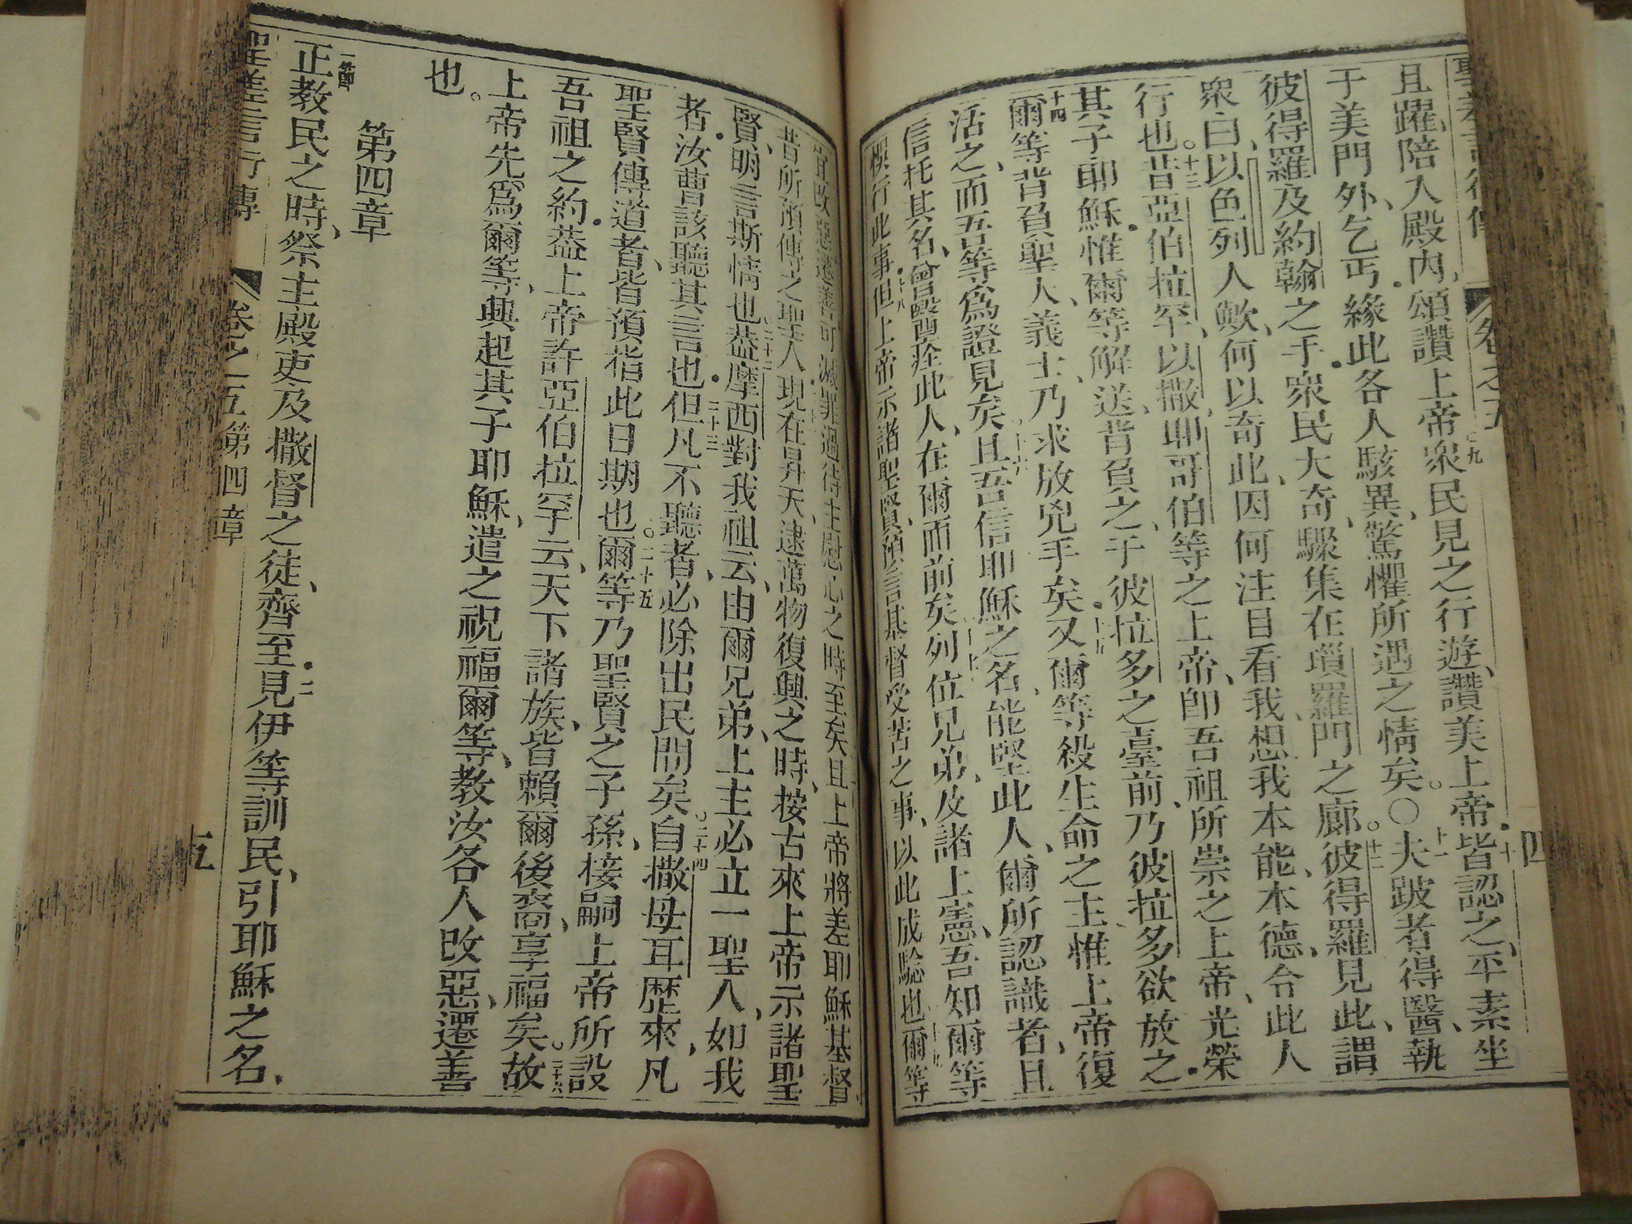 且躍、陪入殿內、頌讚上帝。九衆民見之行遊、讚美上帝。十皆認之、平素坐
于美門外、乞丐。緣此各人駭異、驚懼所遇之情矣。○十一夫跛者得醫、執
彼得羅及約翰之手。衆民大奇、驟集在瑣羅門之廊。十二彼得羅見此、謂
衆白、以色列人歟、何以奇此、因何注目看我、想我本能、本德、令此人
行也。十三昔亞伯拉罕、以撒、耶哥伯等之上帝、卽吾祖所崇之上帝、光榮
其子耶穌。惟爾等解送、背負之、于彼拉多之臺前、乃彼拉多欲放之。
十四爾等背負聖人、義士、乃求放兇手矣。十五又爾等殺生命之主、惟上帝復
活之、而吾等爲證見矣。十六且吾信耶穌之名、能堅此人、爾所認識者、且
信托其名、曾醫痊此人、在爾面前矣。十七列位兄弟、及諸上憲、吾知爾等
行此事。十八但上帝示諸聖賢、預言基督受苦之事、以此成驗也。十九爾等
宜改惡遷善、可滅罪過、待主慰心之時至矣。且上帝將差耶穌基督
昔所預傳之聖人、現在昇天、逮萬物復興之時、按古來上帝示諸聖
賢、明言斯情也。二十二蓋摩西對我祖云、由爾兄弟、上主必立一聖人、如我
者、汝曹該聽其言也。二十三但凡不聽者、必除出民間矣。二十四自撒母耳歷來、凡
聖賢傳道者、皆預指此日期也。二十五爾等乃聖賢之子孫、接嗣上帝所設
吾祖之約。蓋上帝許亞伯拉罕云、天下諸族、皆賴爾後裔、享福矣。二十六故
上帝先爲爾等、興起其子耶穌、遣之祝福爾等、教汝各人改惡、遷善
也。
第四章
一節正教民之時、祭主殿吏及撒督之徒、齊至。二見伊等訓民、引耶穌之名、
聖差言行傳 卷之五 第四章 五